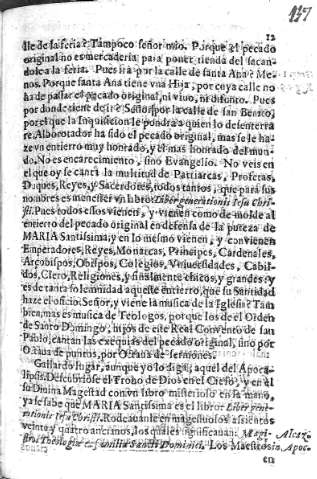 12
137
lle de la feria? Tampoco señor mio. Porque el pecado
original no es mercaderia para poner tienda del sacan-
dole a la feria. Pues irà por la calle de santa Ana? Me-
nos. Porque santa Ana tiene vna Hija, por cuya calle no
ha de passar el pecado original, ni viuo, ni difunto. Pues
por donde tiene de ir? Señor por la calle de san Benito,
por el que la Inquisicion le pondra a quien lo desenterra
re. Alborotador ha sido el pecado original, mas se le ha-
ze vn entierro muy honrado, y el mas honrado del mun-
do. No es encarecimiento, sino Euangelio. No veis en
el que oy se canta la multitud de Patriarcas, Profetas,
Duques, Reyes, y Sacerdotes, todos santos, que para sus
nombres es menester vn libro: Liber generationis Iesu Chri-
sti. Pues todos essos vienen, y vienen como de molde al
entierro del pecado original en defensa de la pureza de
MARIA Santissima, y en lo mesmo vienen, y conuienen
Emperadores, Reyes, Monarcas, Principes, Cardenales,
Arçobispos, Obispos, Colegios, Vniuersidades, Cabil-
dos, Clero, Religiones, y finalmente chicos, y grandes: y
es de tanta solemnidad aqueste entierro, que su Santidad
haze el oficio. Señor, y viene la musica de la Iglesia? Tam
bien, mas es musica de Teologos, porque los de el Orden
de Santo Domingo, hijos de este Real Conuento de san
Pablo, cantan las exequias del pecado original, vno por
Octaua de puntos, por Octaua de sermones.
Gallardo lugar, aunque yo lo diga, aquel del Apoca-
lipsi. Descubriòse el Trono de Dios en el Cielo, y en èl
su Diuina Magestad con vn libro misterioso en la mano,
ya se sabe que MARIA Santissima es el libro: Liber gene-
rationis Iesu Christi. Rodeauanle en magestuosos assientos
veinte y quatro ancianos, los quales significauan: Magi-
stros Theologiæ familiæ Sancti Dominici. Los Maestros
Alcaz.
in Apoc.
en